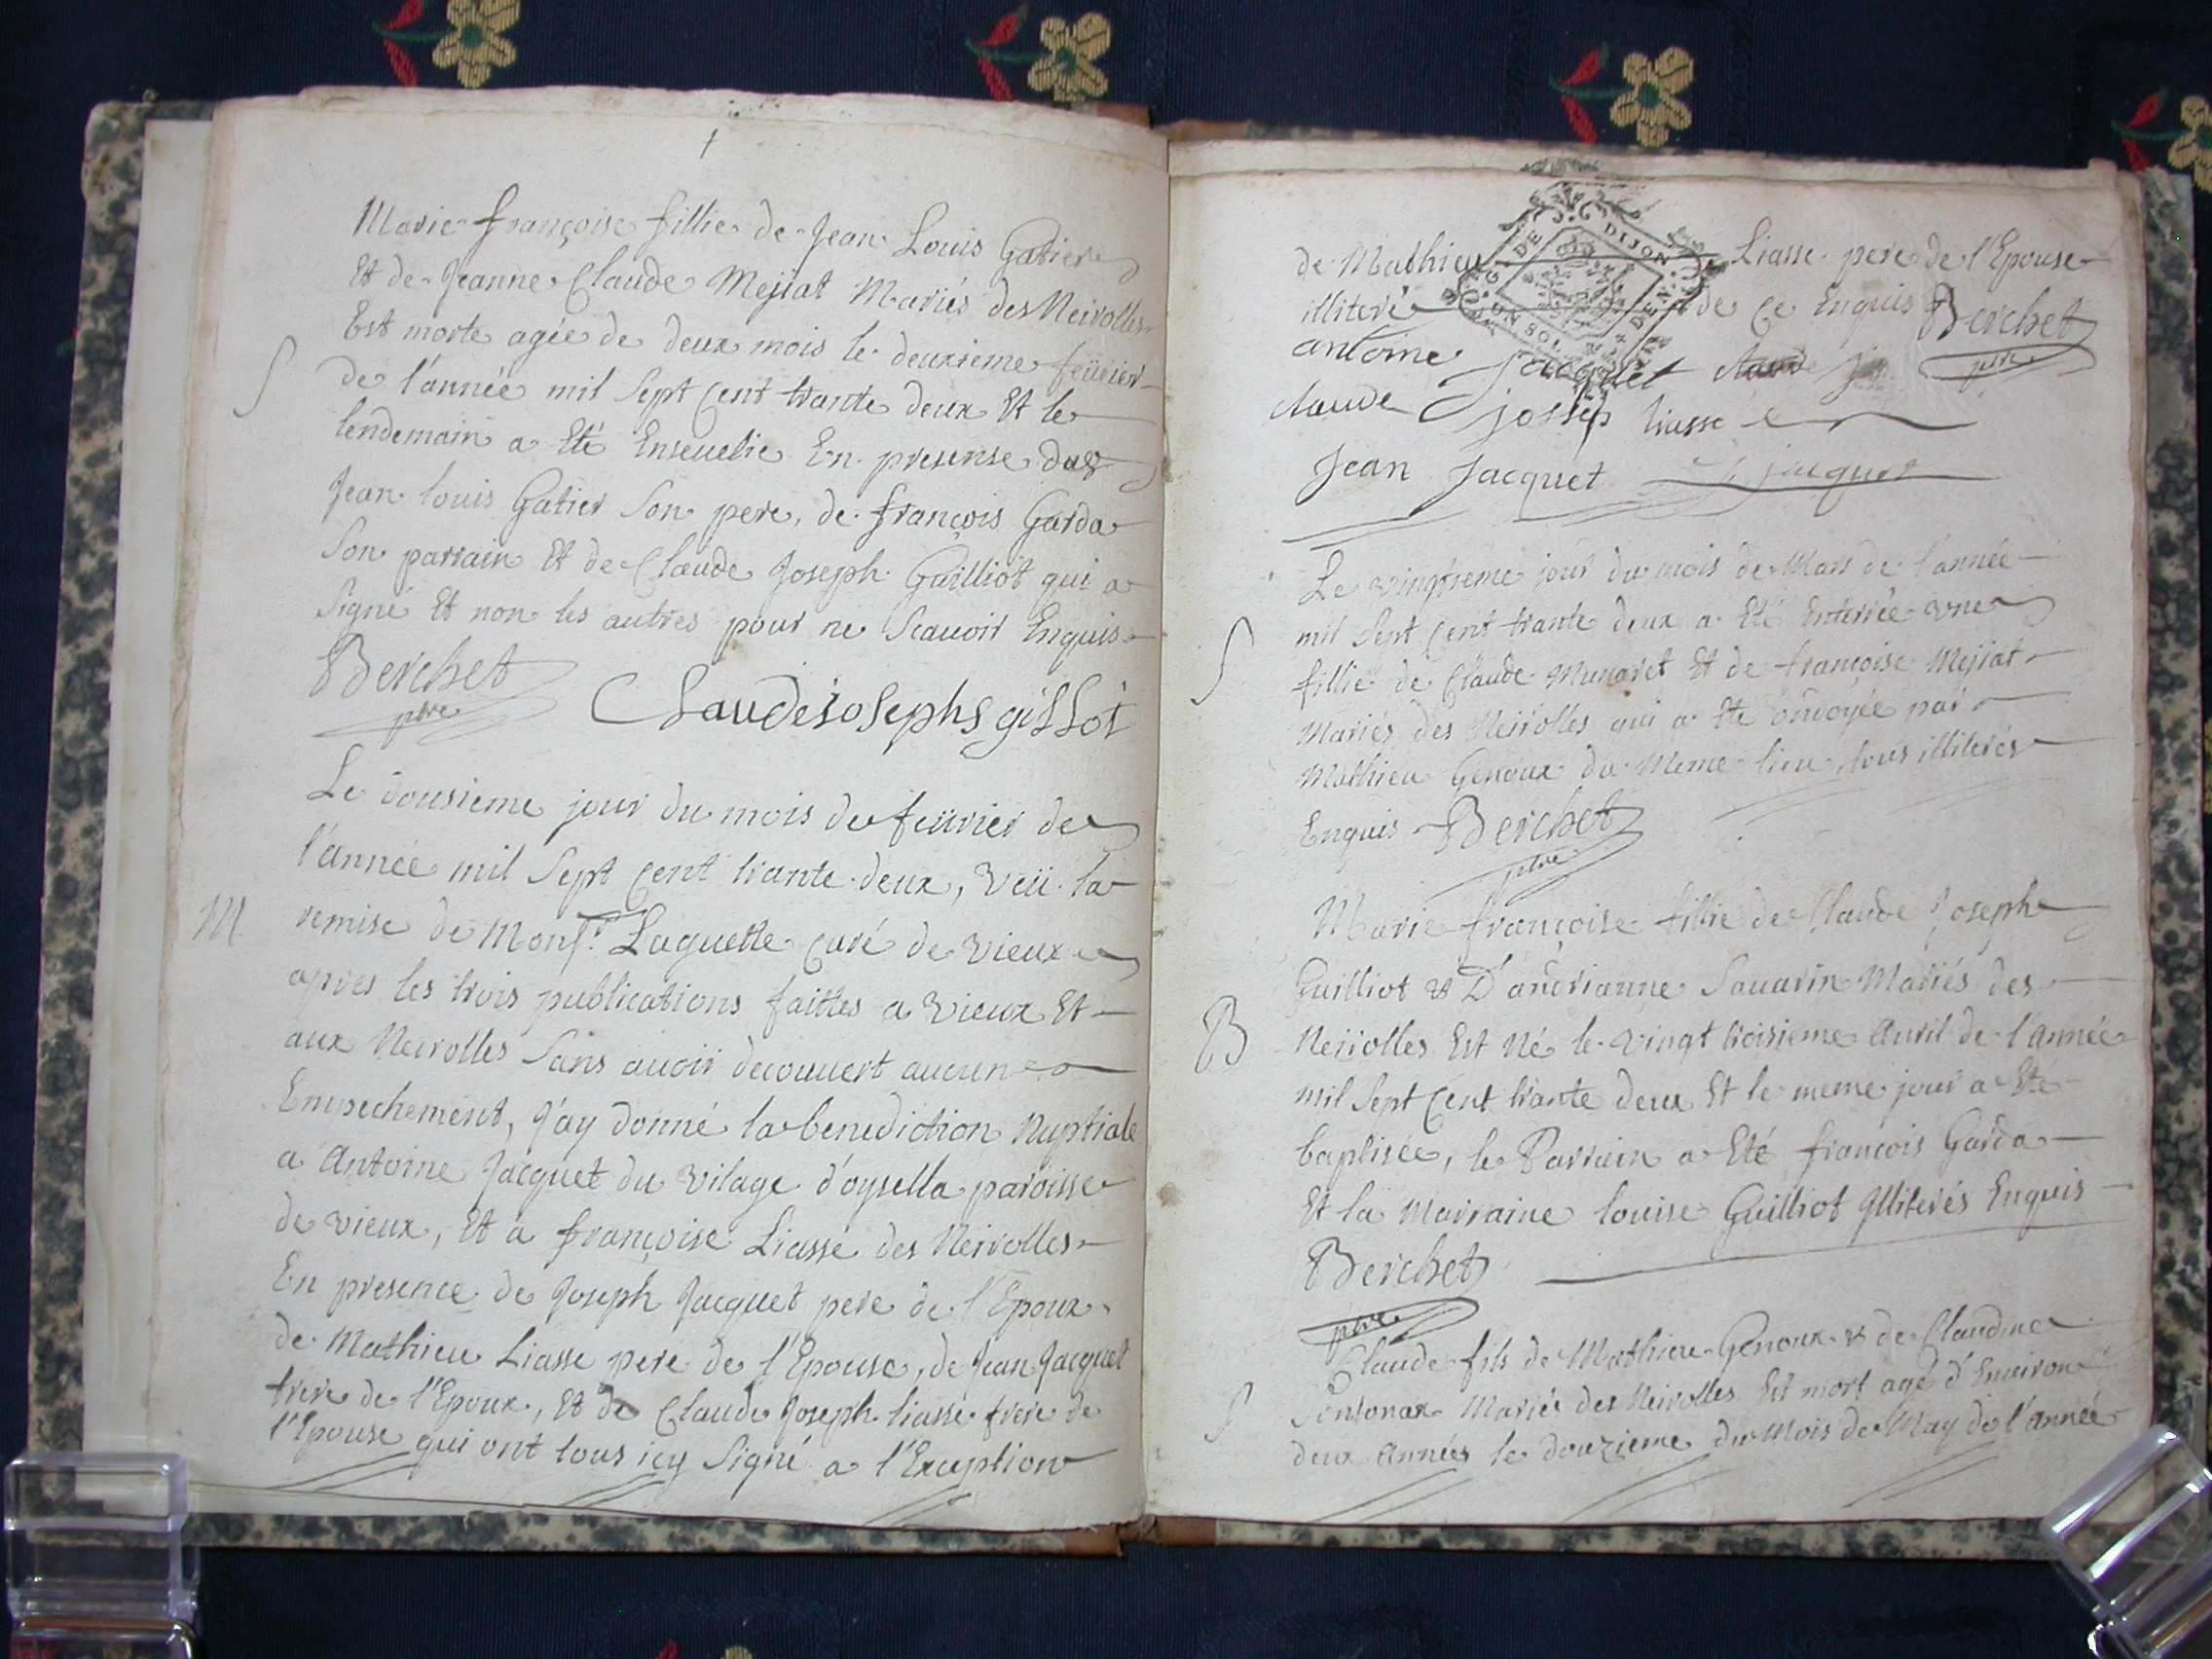 Marie françoise fillie de Jean Louis Gatier
Et de Jeanne Claude Mejiat Mariés des Neirolles
Est morte agée de deux mois le deuxieme feüvier
S de l'année mil Sept Cent trante deux Et le
lendemain a Eté Enseuelie En presense de
Jean louis Gatier Son pere, de françois Garda
Son parrain Et de Claude Joseph Guilliot qui a
Signé Et non les autres pour ne Scauoir Enquis
Berchet
ptre
Claudeiosephs gillot
Le dousieme jour du mois de feüvrier de
l'année mil Sept Cent trante deux, veü la
M remise de Monsr. Laguette Curé de vieux
apres les trois publications faittes a vieux Et
aux Neirolles Sans auoir decouuert aucun
Empechement, J'ay donné la benediction Nuptiale
a Antoine Jacquet du vilage d'oysella paroisse
de vieux, Et a françoise Liasse des Neirolles
En presence de Joseph Jacquet pere de l'Epoux
de Mathieu Liasse pere de l'Epouse, de Jean Jacquet
frere de l'Epoux, Et de Claude Joseph liasse frere de
l'Epouse qui ont tous icy Signé a l'Exception
de Mathieu Liasse pere de l'Epouse
illiteré de ce Enquis Berchet
ptre
antoine jacquet
claude josseph liasse
Jean Jacquet J jacquet
G. DE DIJON
UN SOL
Le vingtieme jour du mois de Mars de l'année
mil Sept Cent trante deux a Eté Enterrée vne
S fillie de Claude Munaret Et de françoise Mejiat
Mariés des Neirolles qui a Ete ondoyée par
Mathieu Genoux du Meme lieu, tous illiterés
Enquis Berchet
ptre
Marie françoise fillie de Claude Joseph
Guilliot & D'andrianne Sauarin Mariés des
B Neirolles Est Né le vingt troisieme Auril de l'Année
mil Sept Cent trante deux Et le meme jour a Ete
baptisée, le Parrain a Eté françois Garda
Et la Marraine louise Guilliot Illiterés Enquis
Berchet
ptre
Claude fils de Mathieu Genoux & de Claudine
S Mariés des Neirolles Est mort agé d'Enuiron
deux Années le douzieme du Mois de May de l'année